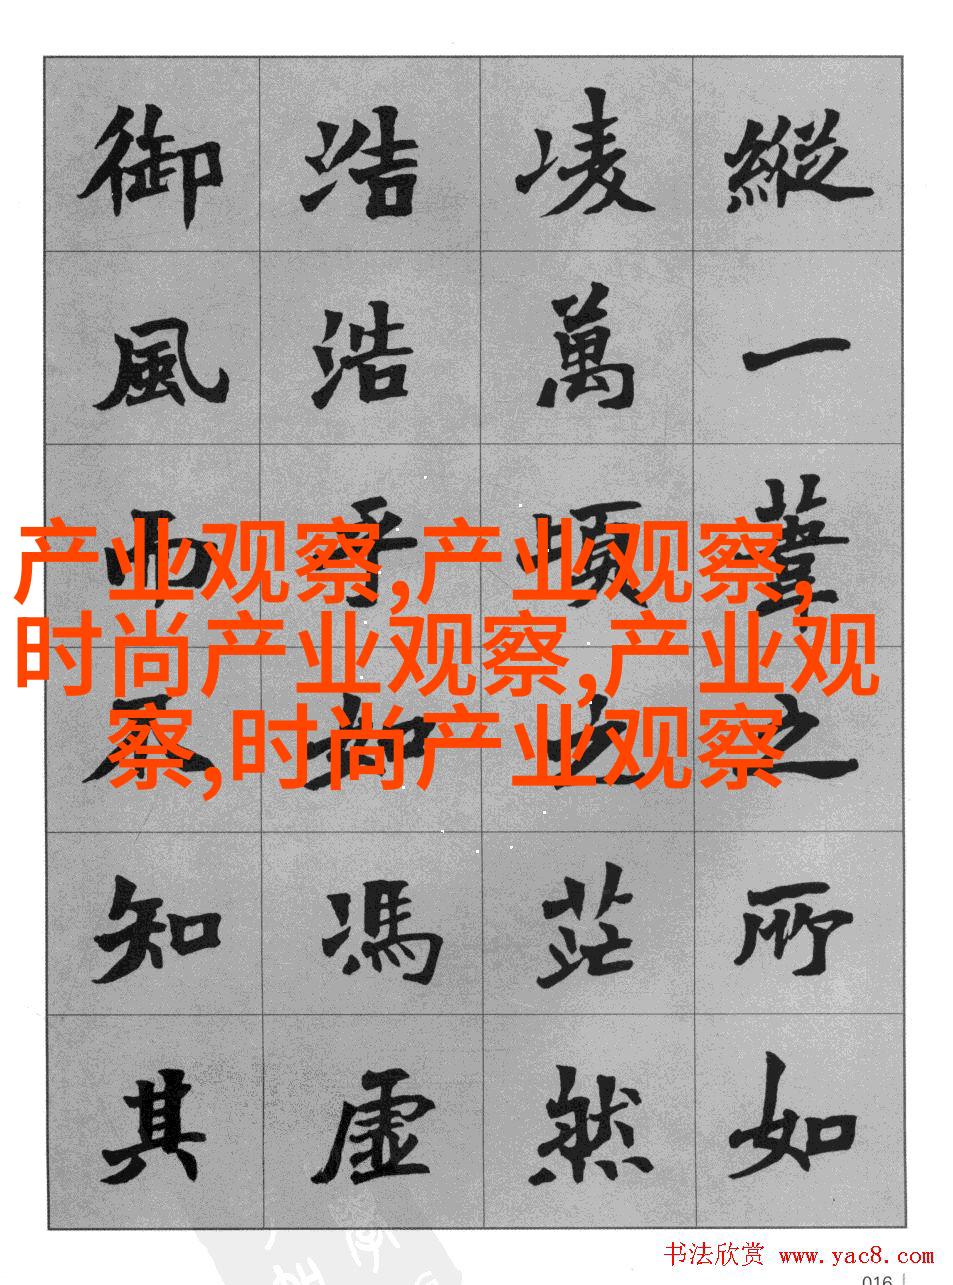 縱一葦之所如
凌萬頃之茫然
浩浩乎如馮虛
御風而不知其
产业观察,产业观察,
时尚产业观察,产业观
察,时尚产业观察
书法欣赏 www.yac8.com
016